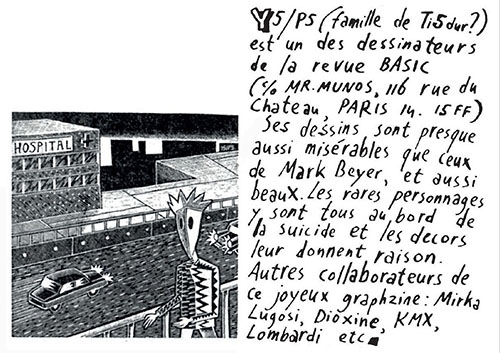 HOSPITAL
Y5/P5 (famille de Ti5dur?)
est un des dessinateurs
de la revue BASIC
(c/o MR.MUNOS, 116 rue du
Chateau, PARIS 14. 15FF)
Ses dessins sont presque
aussi misérables que ceux
de Mark Beyer, et aussi
beaux. Les rares personnages
y sont tous au bord de
la suicide et les decors
leur donnent raison.
Autres collaborateurs de
ce joyeux graphzine: Mirka
Lugosi, Dioxine, KMX,
Lombardi etc.